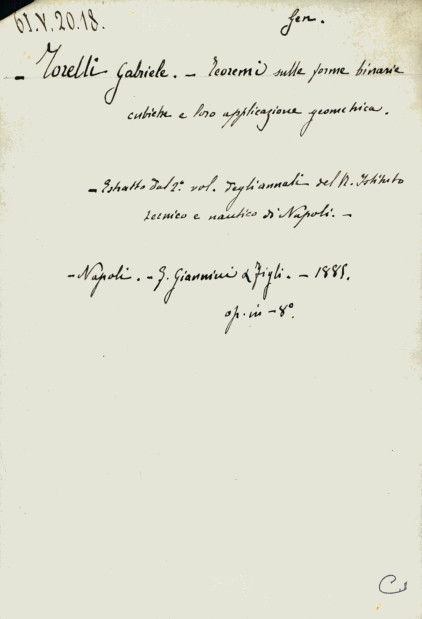 61.V.20.18.
Gen.
- Torelli Gabriele. - Teoremi sulle forme binarie
cubiche e loro applicazione geometrica.
- Estratto dal 2º vol. degli annali del R. Istituto
tecnico e nautico di Napoli. -
- Napoli. - F. Giannini & Figli. - 1885.
op. in - 8º.